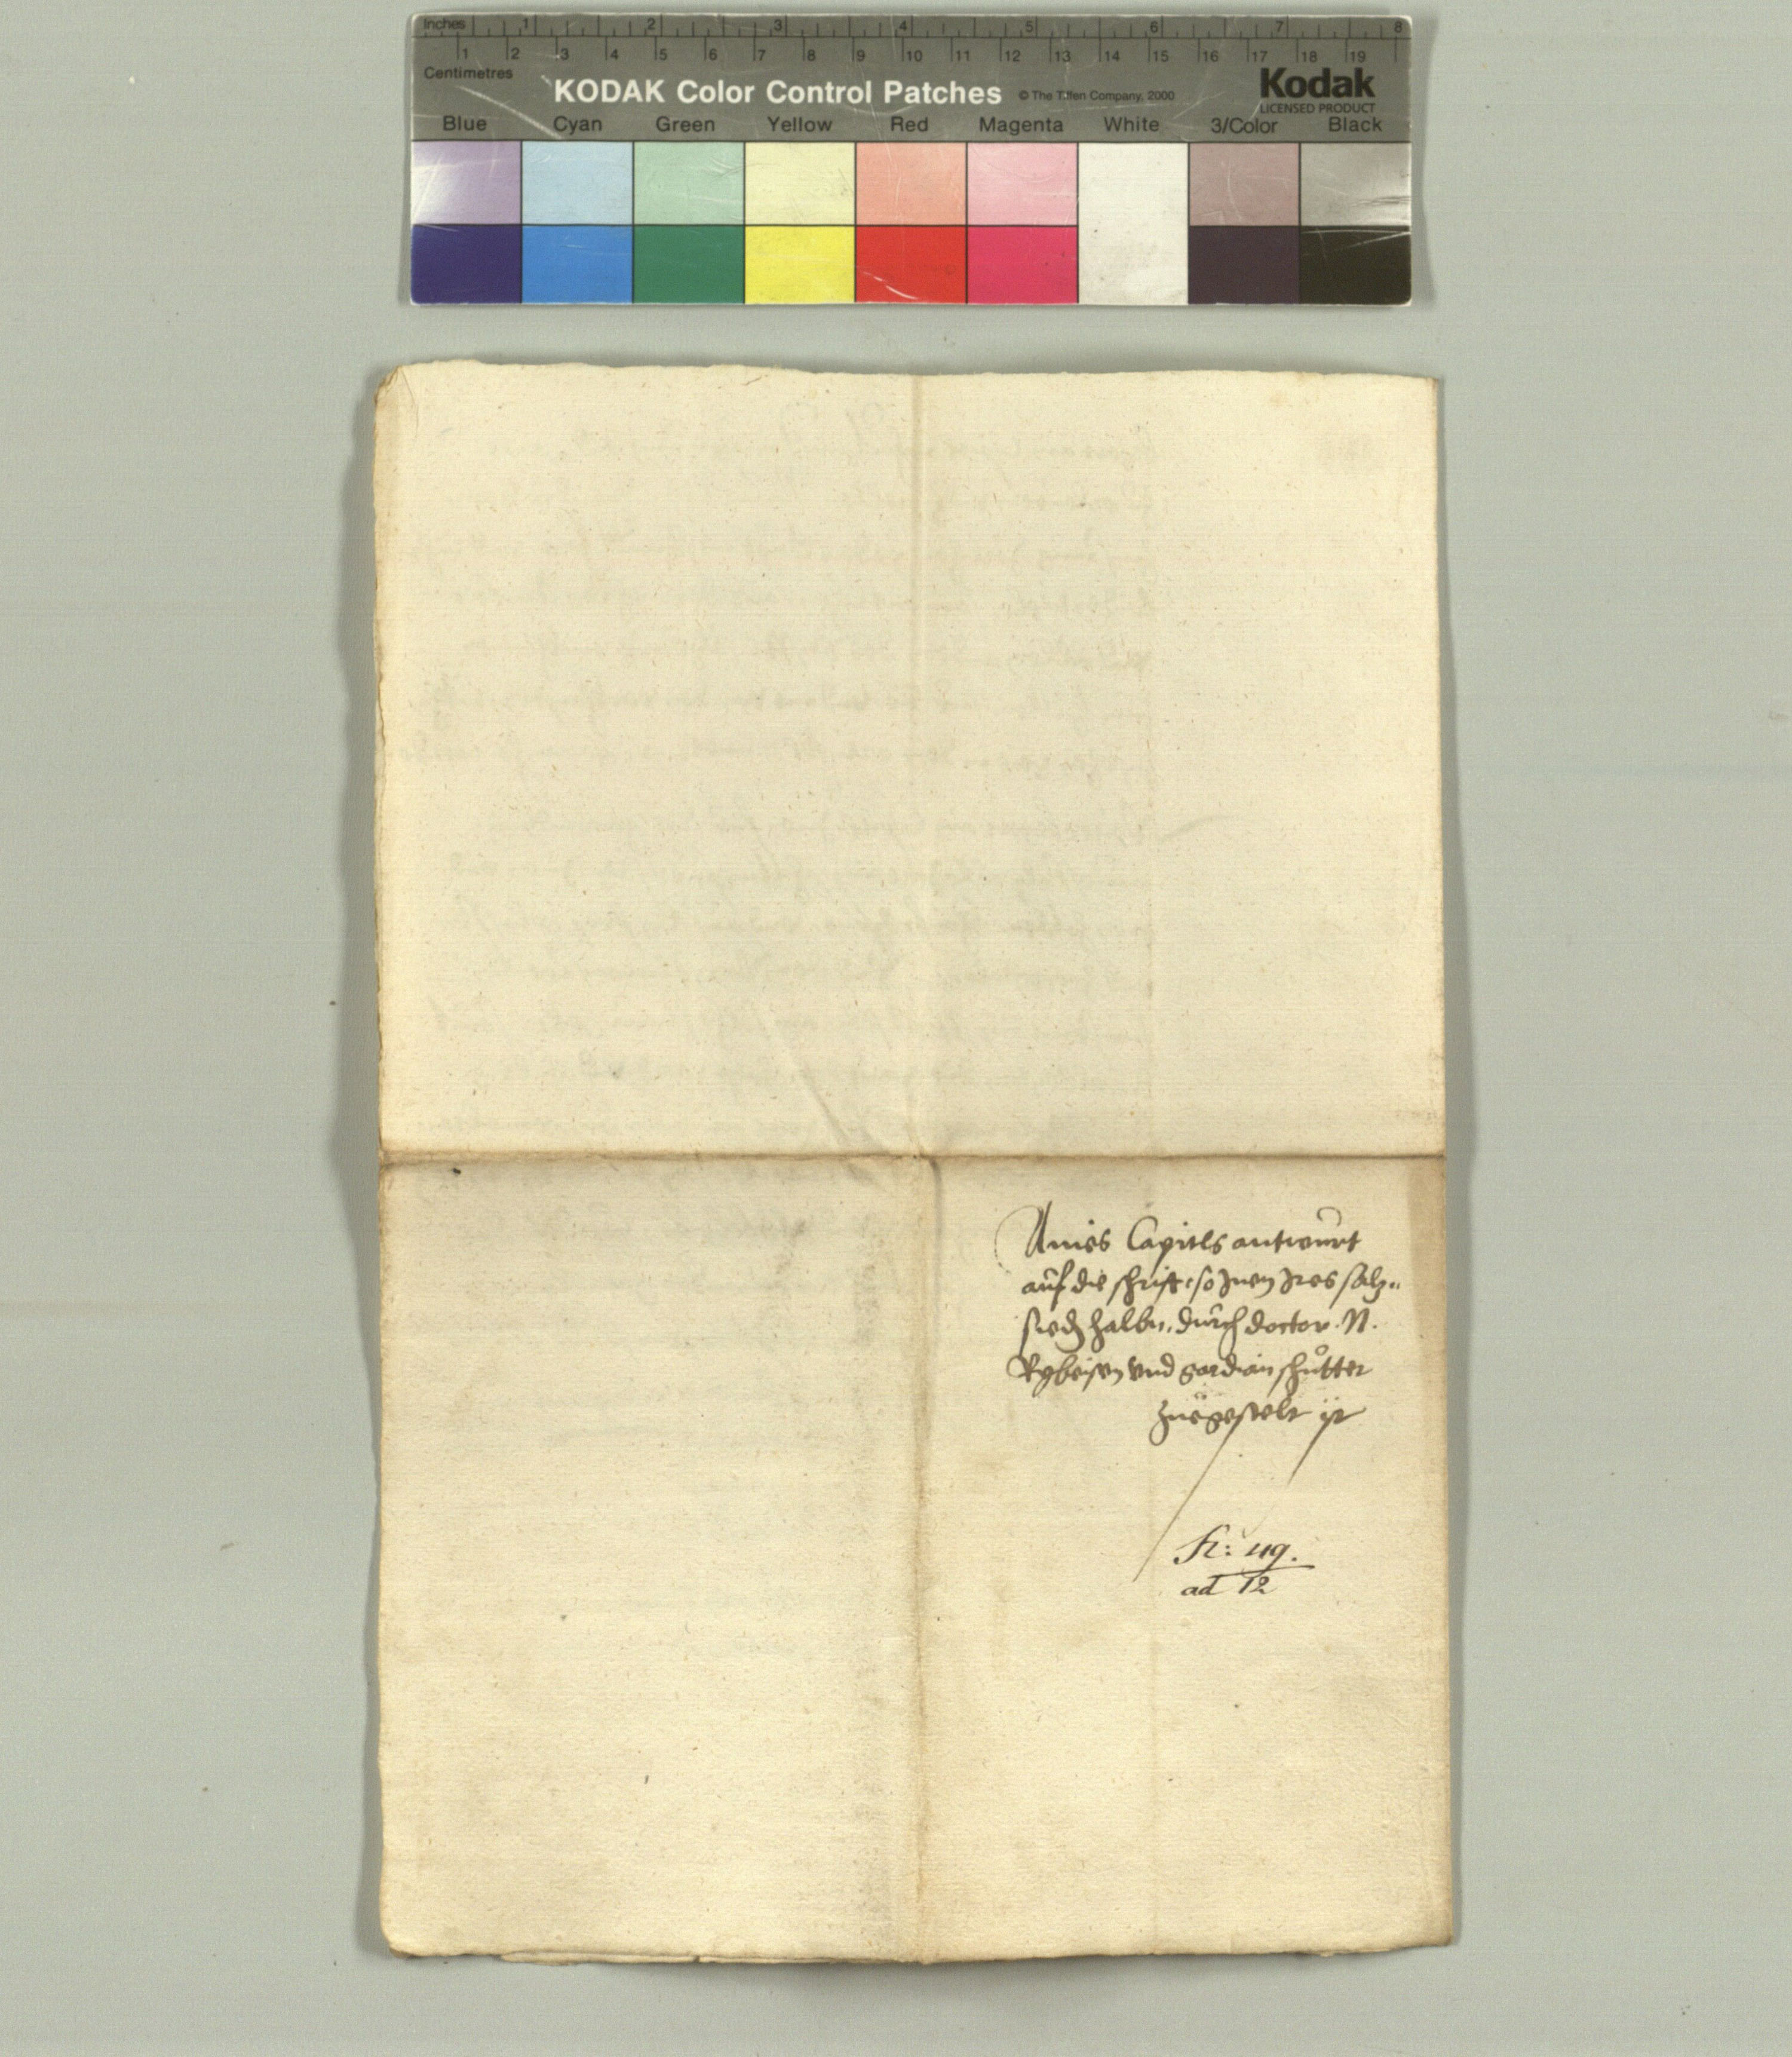 Inches 1 2 3 4 5 6 7 8
1 2 3 4 5 6 7 8 9 10 11 12 13 14 15 16 17 18 19
Centimetres
KODAK Color Control Patches © The Tiffen Company, 2000 Kodak
LICENSED PRODUCT
Blue Cyan Green Yellow Red Magenta White 3/Color Black
Capitls antwurt
auf die schrift so Inen Ires salz„
sieds halbn. durch doctor. N.
Rybeisen vnd gordian shůtter
zuegestelt ist
ad 12